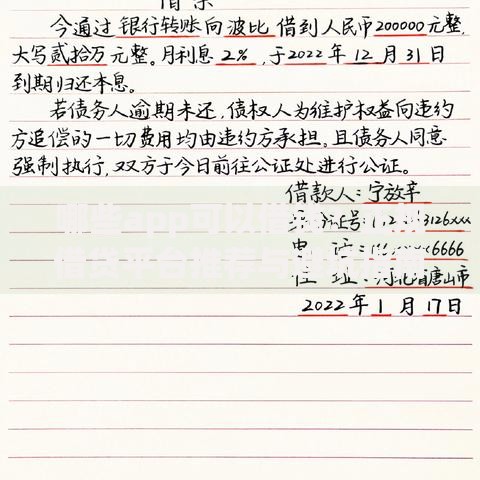 借条
今通过银行转账向波比借到人民币200000元整,
大写贰拾万元整。月利息2%,于2022年12月31日
到期归还本息。
若债务人逾期未还,债权人为维护权益向违约
方追偿的一切费用均由违约方承担。且债务人同意
强制执行,双方于今日前往公证处进行公证。
借款人:宁放辛
身份证号:
电 话:
住 址:河北省唐山市
2022年1月17日
app可以借